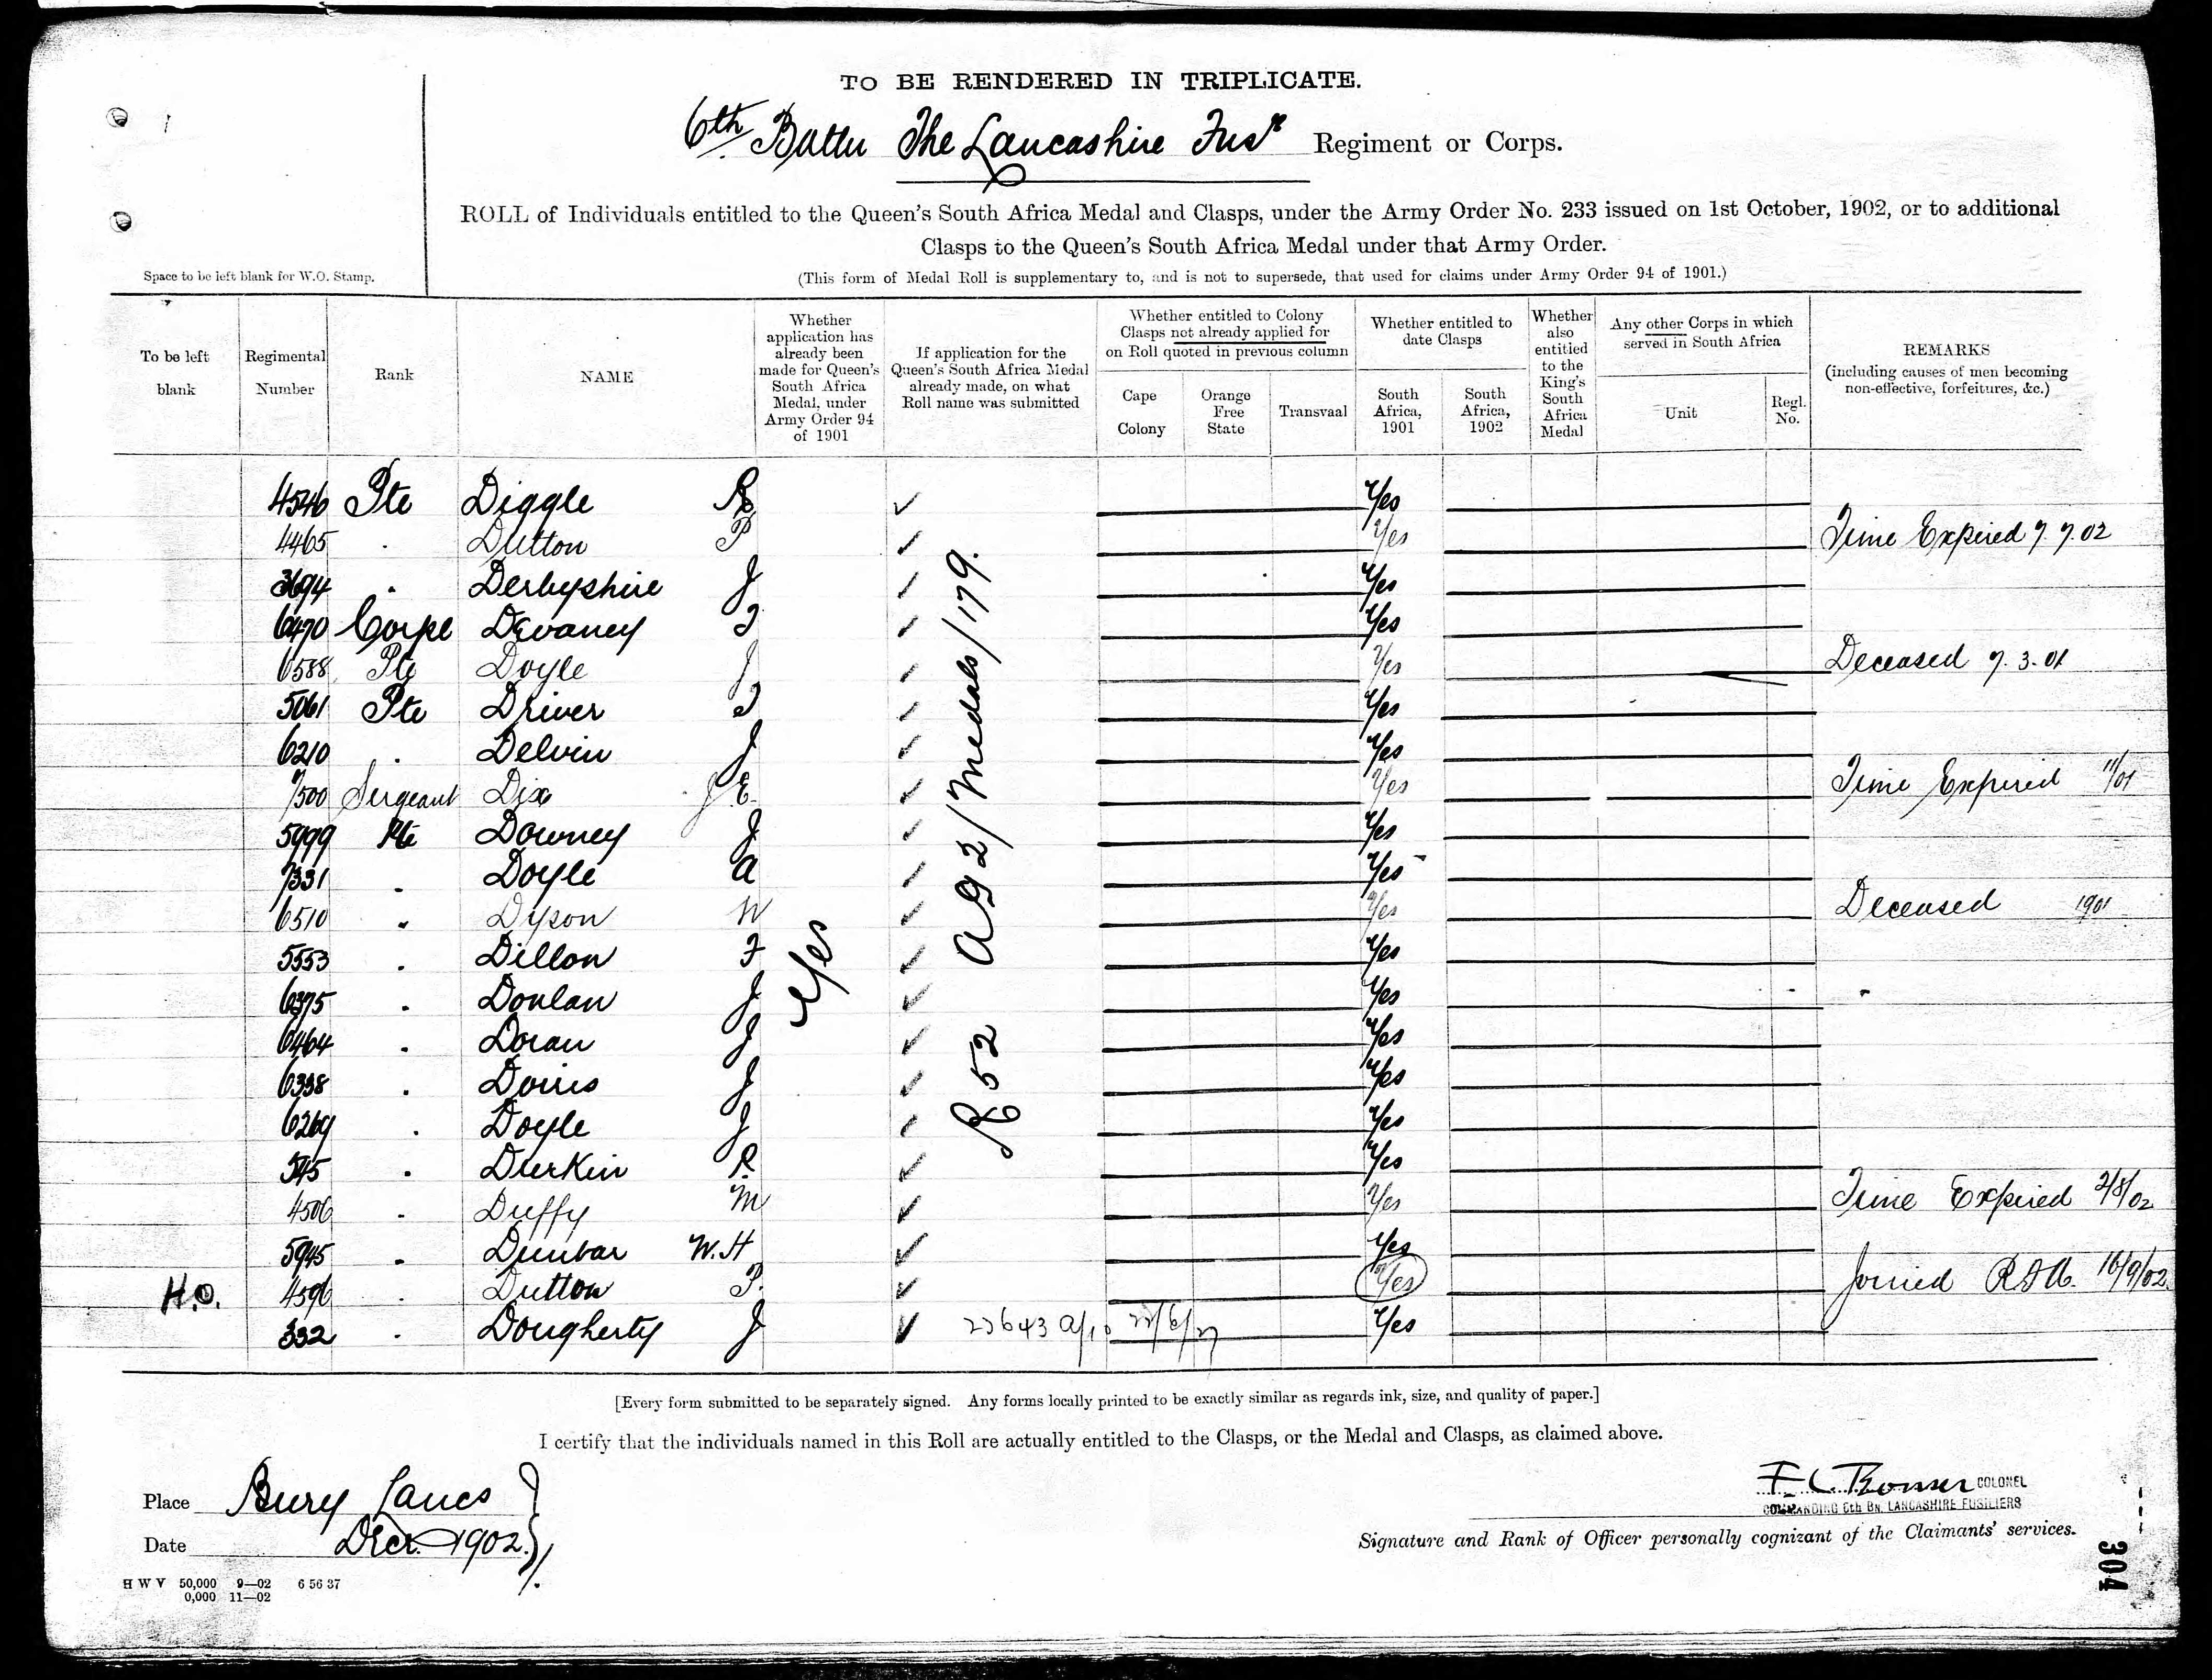 TO BE RENDERED IN TRIPLICATE.
6th Battn The Lancashire Fusrs Regiment or Corps.
ROLL of Individuals entitled to the Queen's South Africa Medal and Clasps, under the Army Order No. 233 issued on 1st October, 1902, or to additional
Clasps to the Queen's South Africa Medal under that Army Order.
(This form of Medal Roll is supplementary to, and is not to supersede, that used for claims under Army Order 94 of 1901.)
Space to be left blank for W.O. Stamp.
To be left blank
Regimental Number
Rank
NAME
Whether application has already been made for Queen's South Africa Medal, under Army Order 94 of 1901
If application for the Queen's South Africa Medal already made, on what Roll name was submitted
Whether entitled to Colony Clasps not already applied for on Roll quoted in previous column
Cape Colony
Orange Free State
Transvaal
Whether entitled to date Clasps
South Africa, 1901
South Africa, 1902
Whether also entitled to the King's South Africa Medal
Any other Corps in which served in South Africa
Unit
Regl. No.
REMARKS
(including causes of men becoming non-effective, forfeitures, &c.)
4546 Pte Diggle R ✓ Yes
4465 . Dutton P ✓ Yes Time Expired 7.7.02
3694 . Derbyshire J ✓ Yes
6470 Corpl Devaney T ✓ Yes
6588 Pte Doyle J ✓ Yes Deceased 7.3.01
5061 Pte Driver T ✓ Yes
6210 . Delvin J ✓ Yes
7500 Sergeant Dix J E ✓ Yes Time Expired 11/01
5999 Pte Downey J ✓ Yes
7331 . Doyle A ✓ Yes
6510 " Dyson W ✓ Yes Deceased 1901
5553 . Dillon F ✓ Yes
6375 . Donlan J ✓ Yes
6464 . Doran J ✓ Yes
6338 . Dorris J ✓ Yes
6269 . Doyle J ✓ Yes
545 . Durkin R. ✓ Yes
4506 . Duffy M ✓ Yes Time Expired 2/8/02
5945 . Dunbar W.H ✓ Yes
H.O. 4596 . Dutton P. ✓ Yes Joined R.G.A. 16/9/02
332 . Dougherty J ✓ 22643 A/10 22/6/27 Yes
Yes
R 52 AG2/Medals/179.
[Every form submitted to be separately signed. Any forms locally printed to be exactly similar as regards ink, size, and quality of paper.]
I certify that the individuals named in this Roll are actually entitled to the Clasps, or the Medal and Clasps, as claimed above.
Place Bury Lancs
Date Decr 1902.
COLONEL
COMMANDING 6th BN. LANCASHIRE FUSILIERS
Signature and Rank of Officer personally cognizant of the Claimants' services.
H W V 50,000 9—02 6 56 37
0,000 11—02
304